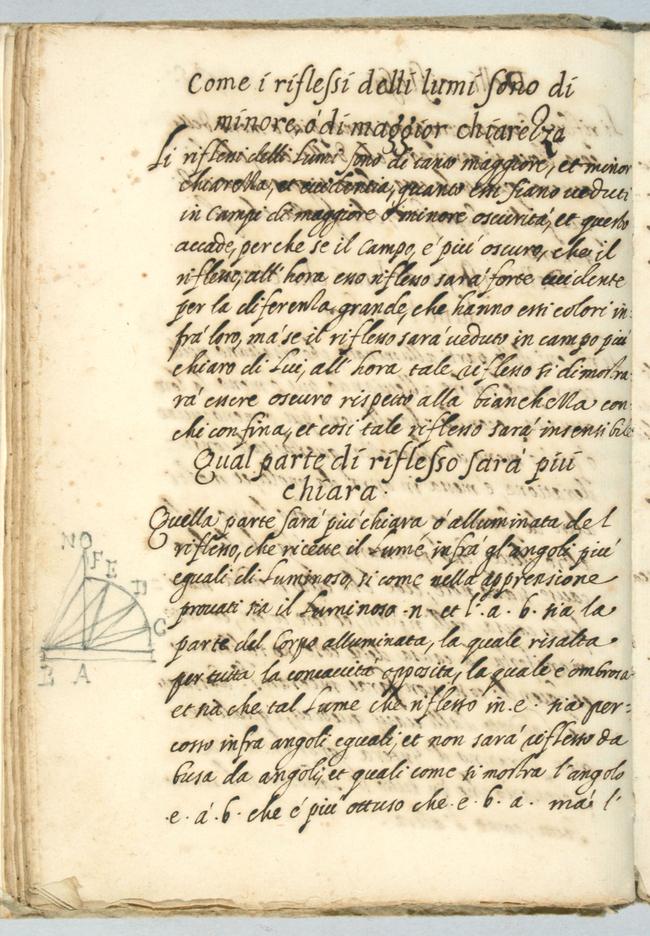 Come i riflessi delli lumi sono di
minore, ó di maggior chiarezza
Li riflessi delli Lumi sono di tanto maggiore, et minor
chiarezza, et euidentia, quanto essi siano ueduti
in Campi di maggiore ó minore oscurita, et questo
accade, perche se il Campo, é piú oscuro, che il
riflesso, all' hora esso riflesso sará forte euidente
per la differenza grande, che hanno essi colori in-
frá loro, má se il riflesso sará ueduto in campo piú
chiaro di Lui, all' hora tale riflesso si dimostra-
rá essere oscuro rispetto alla bianchezza con
chi confina, et cosi tale riflesso sará insensibile
Qual parte di riflesso sará piú
chiara.
Quella parte sará piú chiara ó alluminata del
riflesso, che riceue il Lume infrá gl' angoli piú
eguali di Luminoso, si come nella apprensione
prouati sia il Luminoso .n. et l' .a. b. sia la
parte del Corpo alluminata, la quale risalta
per tutta la concauitá opposita, la quale é ombrosa
et sia che tal Lume che riflesso in .e. sia per-
cosso infra angoli eguali, et non sará riflesso da
busa da angoli, et quali come si mostra l' angolo
.e. á. b. che é piú ottuso che .e. b. a. má l'
N O
F E
D
C
B A